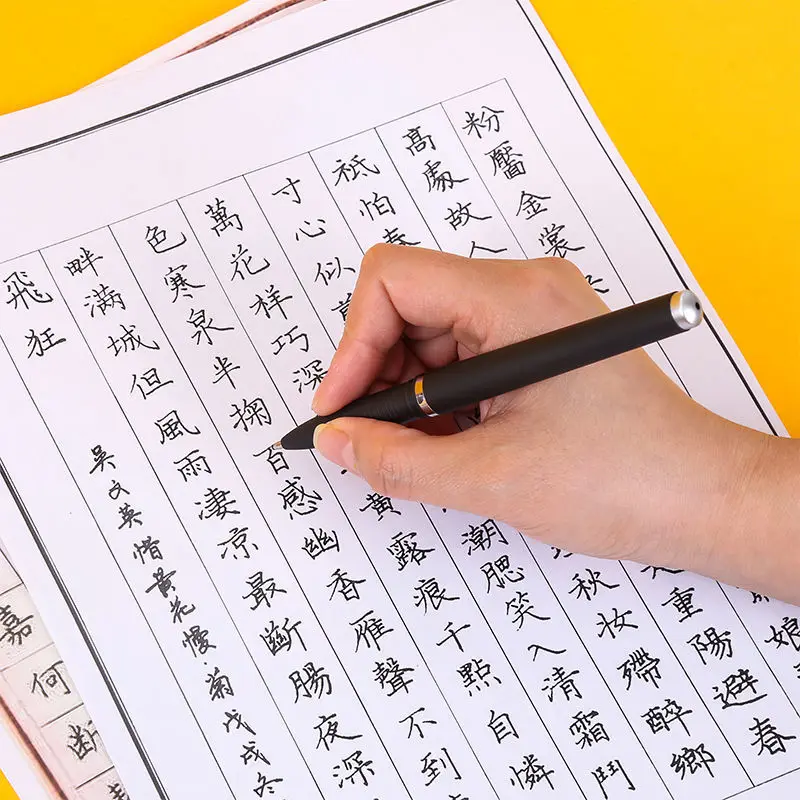 粉靨金裳 娘
高處故人 重陽避春
祇怕春 秋妝殢醉鄉
寸心似 潮腮笑入清霜鬥
萬花樣巧深 黃露痕千點自憐
色寒泉半掬百感幽香雁聲不到
畔滿城但風雨淒涼最斷腸夜深
飛狂
吳文英惜黃花慢·菊戊戌冬
嘉何斷